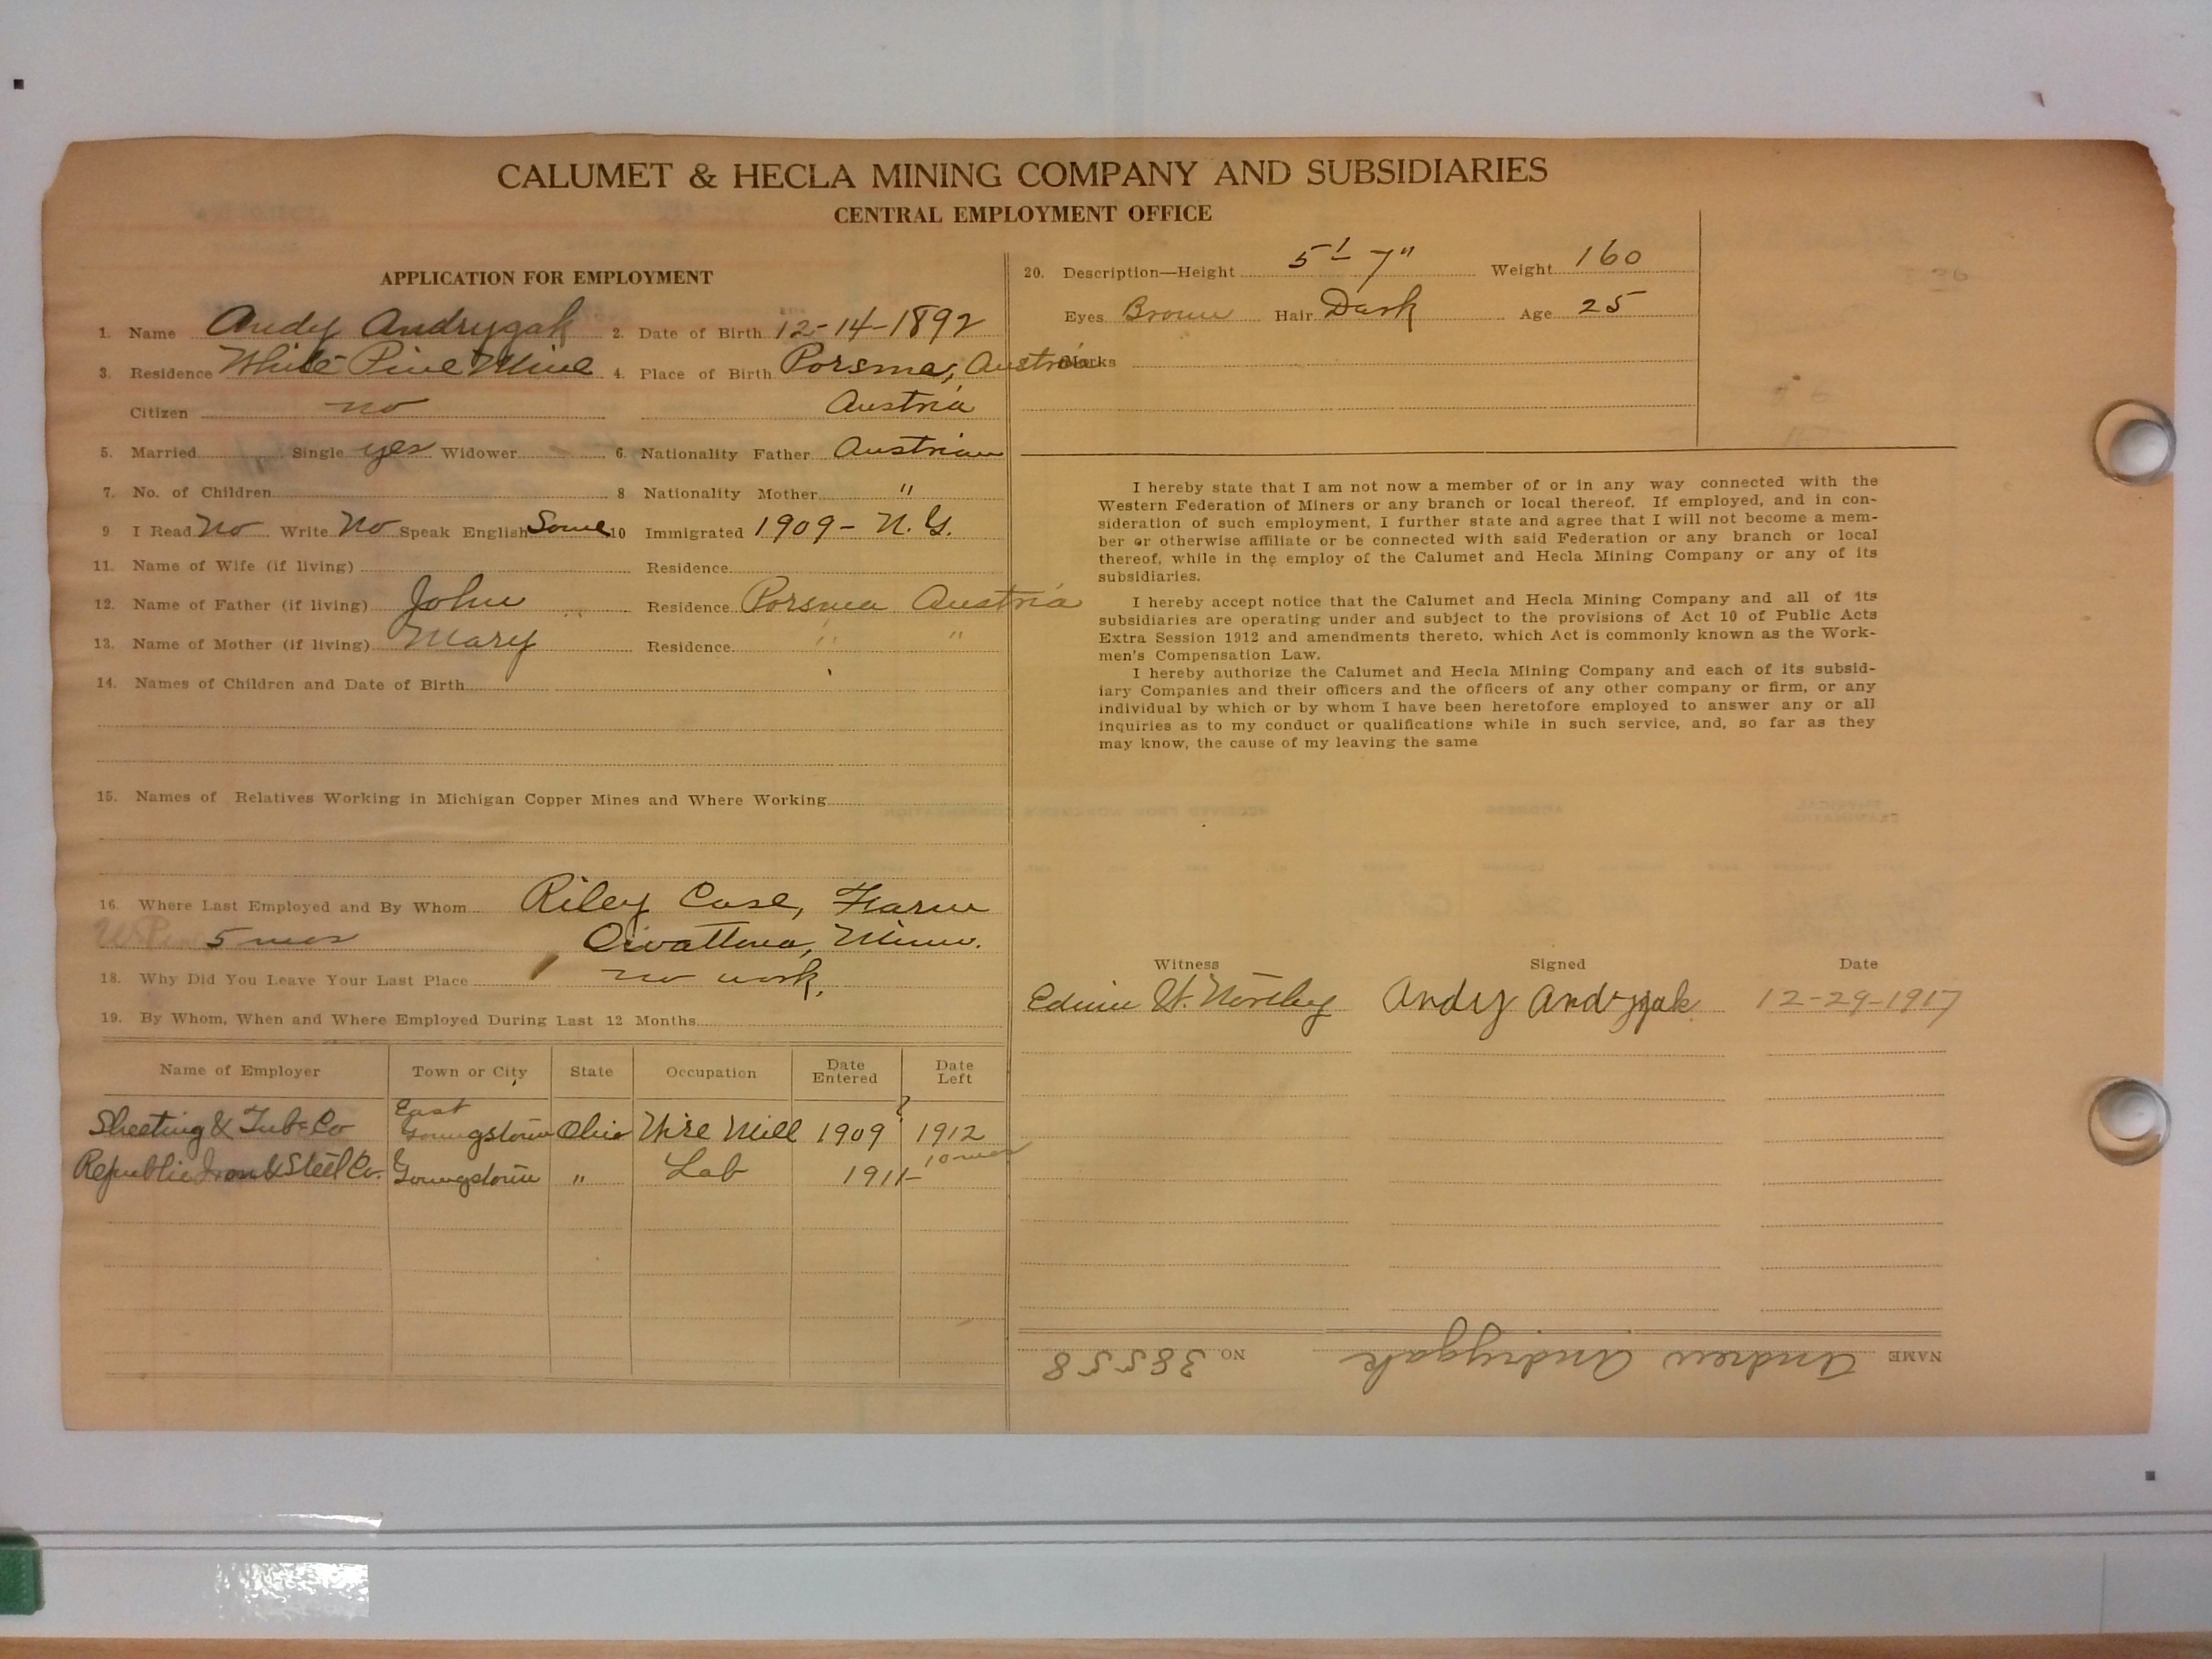 CALUMET & HECLA MINING COMPANY AND SUBSIDIARIES
CENTRAL EMPLOYMENT OFFICE
APPLICATION FOR EMPLOYMENT
1. Name Andy Andrygak 2. Date of Birth 12-14-1892
3. Residence White Pine Mine 4. Place of Birth Porsma, Austria
Citizen no Austria
5. Married Single yes Widower 6. Nationality Father Austrian
7. No. of Children 8 Nationality Mother "
9 I Read No Write No Speak English Some 10 Immigrated 1909- N.Y.
11. Name of Wife (if living) Residence
12. Name of Father (if living) John Residence Porsma Austria
13. Name of Mother (if living) Mary Residence " "
14. Names of Children and Date of Birth
15. Names of Relatives Working in Michigan Copper Mines and Where Working
16. Where Last Employed and By Whom Riley Case, Farm
5 mos Minn.
18. Why Did You Leave Your Last Place no work.
19. By Whom, When and Where Employed During Last 12 Months
Name of Employer Town or City State Occupation Date Entered Date Left
Sheeting & Tube Co East Youngstown Ohio Wire Mill 1909 ? 1912
Republic Iron & Steel Co. Youngstown " Lab 1911- 10 mos
20. Description—Height 5' 7" Weight 160
Eyes Brown Hair Dark Age 25
Marks
I hereby state that I am not now a member of or in any way connected with the
Western Federation of Miners or any branch or local thereof. If employed, and in con-
sideration of such employment, I further state and agree that I will not become a mem-
ber or otherwise affiliate or be connected with said Federation or any branch or local
thereof, while in the employ of the Calumet and Hecla Mining Company or any of its
subsidiaries.
I hereby accept notice that the Calumet and Hecla Mining Company and all of its
subsidiaries are operating under and subject to the provisions of Act 10 of Public Acts
Extra Session 1912 and amendments thereto, which Act is commonly known as the Work-
men's Compensation Law.
I hereby authorize the Calumet and Hecla Mining Company and each of its subsid-
iary Companies and their officers and the officers of any other company or firm, or any
individual by which or by whom I have been heretofore employed to answer any or all
inquiries as to my conduct or qualifications while in such service, and, so far as they
may know, the cause of my leaving the same
Witness Signed Date
Andy Andrygak 12-29-1917
NAME Andrew Andrygak NO. 38558